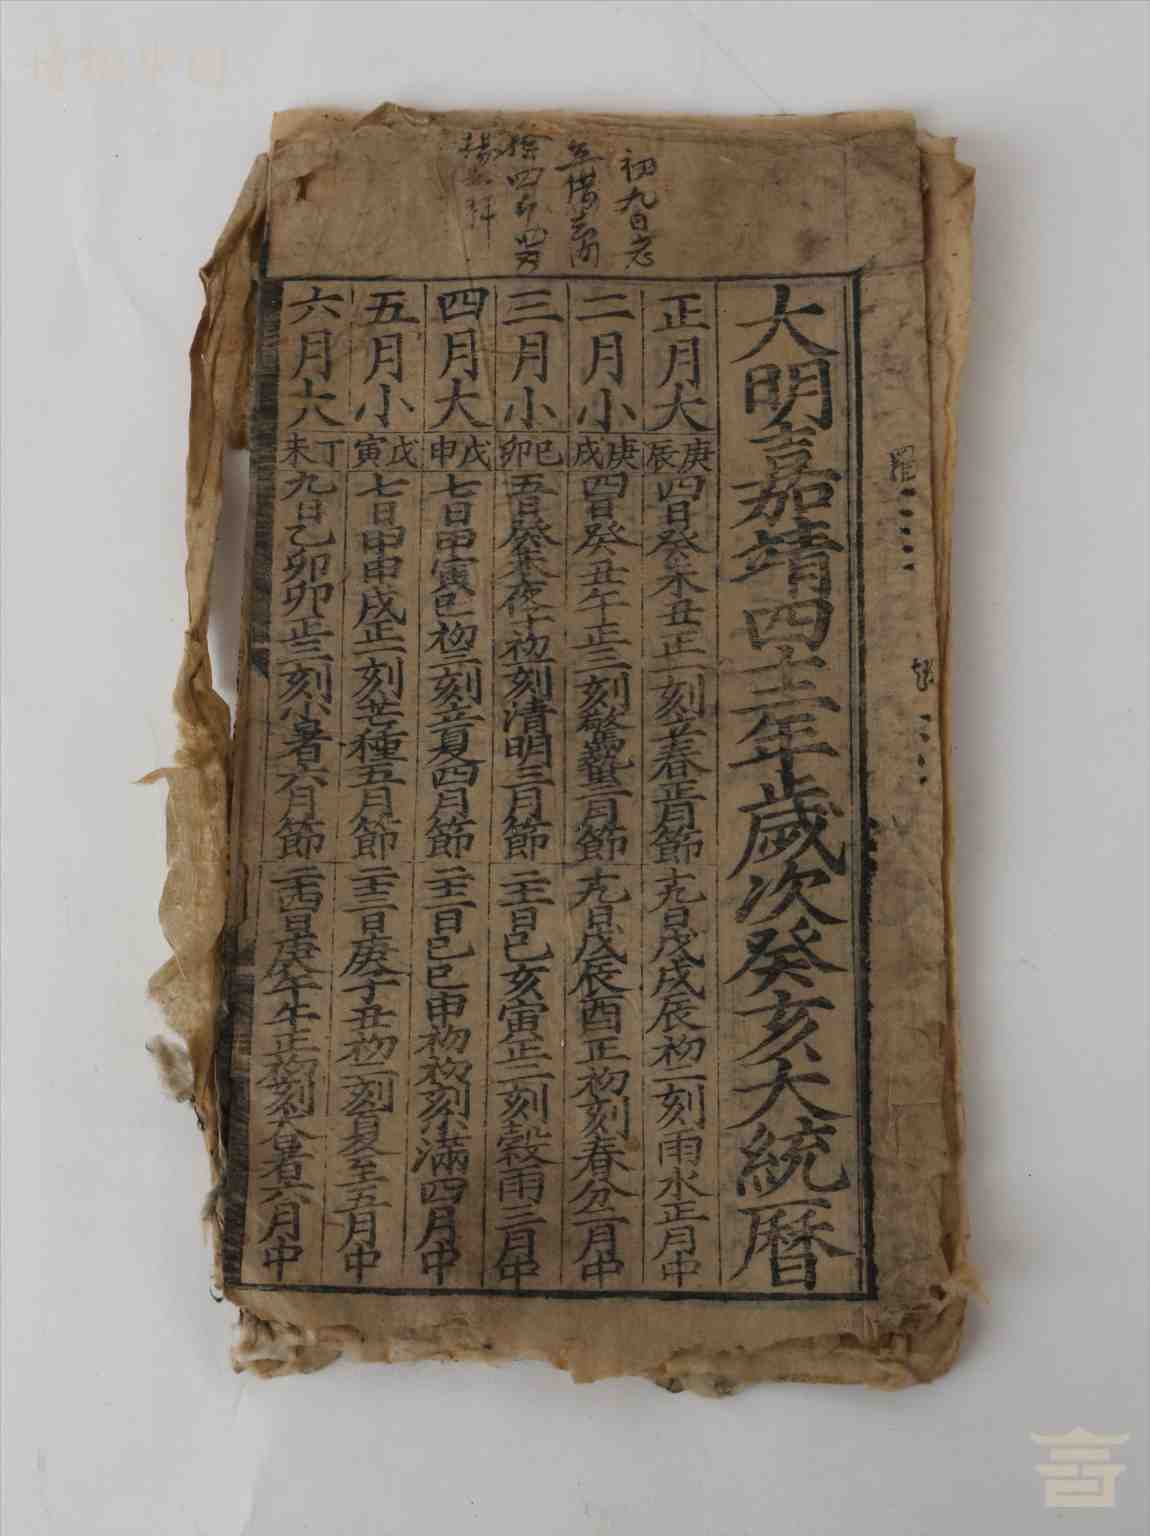 大明嘉靖四十二年歲次癸亥大統曆
正月大 庚辰 四日癸未丑正一刻立春正月節 十九日戊戌辰初二刻雨水正月中
二月小 庚戌 四日癸丑午正三刻驚蟄二月節 十九日戊辰酉正初刻春分二月中
三月小 己卯 五日癸未夜子初一刻清明三月節 二十一日己亥寅正二刻穀雨三月中
四月大 戊申 七日甲寅巳初三刻立夏四月節 二十二日己巳申初初刻小滿四月中
五月小 戊寅 七日甲申戌正一刻芒種五月節 二十三日庚子丑初二刻夏至五月中
六月大 丁未 九日乙卯卯正三刻小暑六月節 二十四日庚午午正初刻大暑六月中
初九日